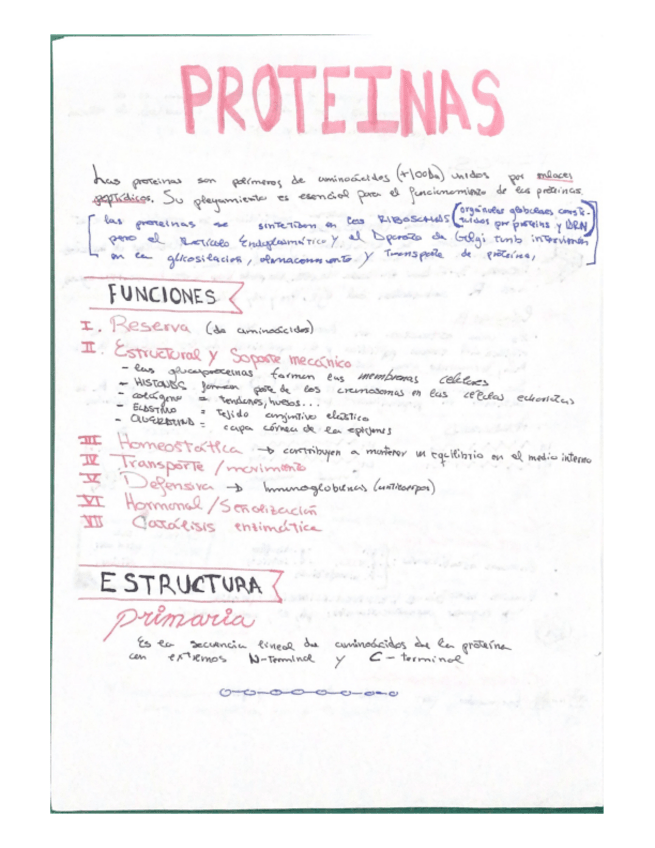 PROTEINAS
Las proteinas son polímeros de aminoácidos (+100Da) unidos por enlaces
peptídicos. Su plegamiento es esencial para el funcionamiento de las proteinas.
las proteinas se sintetizan en los RIBOSOMAS (orgánulos globulares consti-
tuidos por proteína y ARN)
pero el Retículo Endoplasmático y el Aparato de Golgi tmb intervienen
en la glicosilación, almacenamiento y Transporte de proteína,
FUNCIONES
I. Reserva (de aminoácidos)
II. Estructural y Soporte mecánico
- las glucoproteinas forman las membranas celulares
- HISTONAS forman parte de los cromosomas en las células eucariotas
- colágeno = tendones, huesos...
- ELASTINA = Tejido conjuntivo elástico
- QUERATINA = capa córnea de la epidermis
III Homeostática → contribuyen a mantener un equilibrio en el medio interno
IV Transporte / movimiento
V Defensiva → Inmunoglobulinas (anticuerpos)
VI Hormonal / Señalización
VII Catálisis enzimática
ESTRUCTURA
primaria
Es la secuencia lineal de aminoácidos de la proteína
con extremos N-Terminal y C-terminal